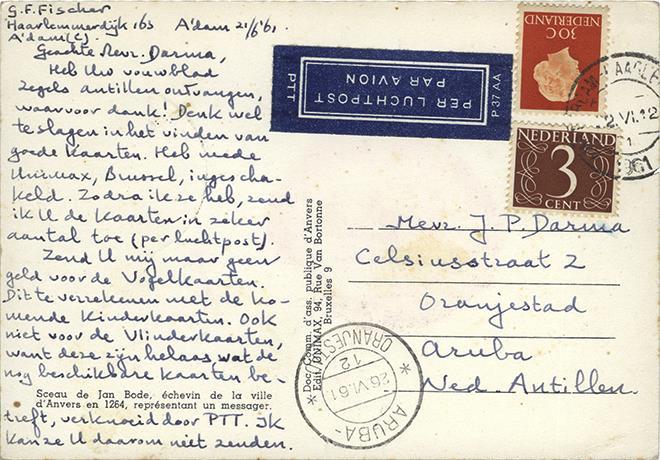 G.F. Fischer
Haarlemmerdijk 165 A'dam 21/6'61
A'dam (C).
Geachte Mevr. Darma,
Heb Uw vouwblad
zegels antillen ontvangen,
waarvoor dank! Denk wel
te slagen in het vinden van
goede kaarten. Heb mede
Unimax, Brussel, ingescha-
keld. Zodra ik ze heb, zend
ik U de kaarten in zeker
aantal toe (per luchtpost).
Zend U mij maar geen
geld voor de Vogelkaarten.
Dit te verrekenen met de ko-
mende Kinderkaarten. Ook
niet voor de Vlinderkaarten,
want deze zijn helaas wat de
nog beschikbare kaarten be-
Sceau de Jan Bode, échevin de la ville
d'Anvers en 1264, représentant un messager.
treft, verknoeid door PTT. Ik
kan ze U daarom niet zenden.
PER LUCHTPOST
PAR AVION
PTT
P 37 AA
NEDERLAND
30C
NEDERLAND
3
CENT
2.VI.12
1961
Doc/Comm. d'ass. publique d'Anvers
Edit. UNIMAX, 94, Rue Van Bortonne
Bruxelles 9
Mevr. J. P. Darma
Celsiusstraat 2
Oranjestad
Aruba
Ned. Antillen.
ORANJEST
12
26 VI 61
* ARUBA- *